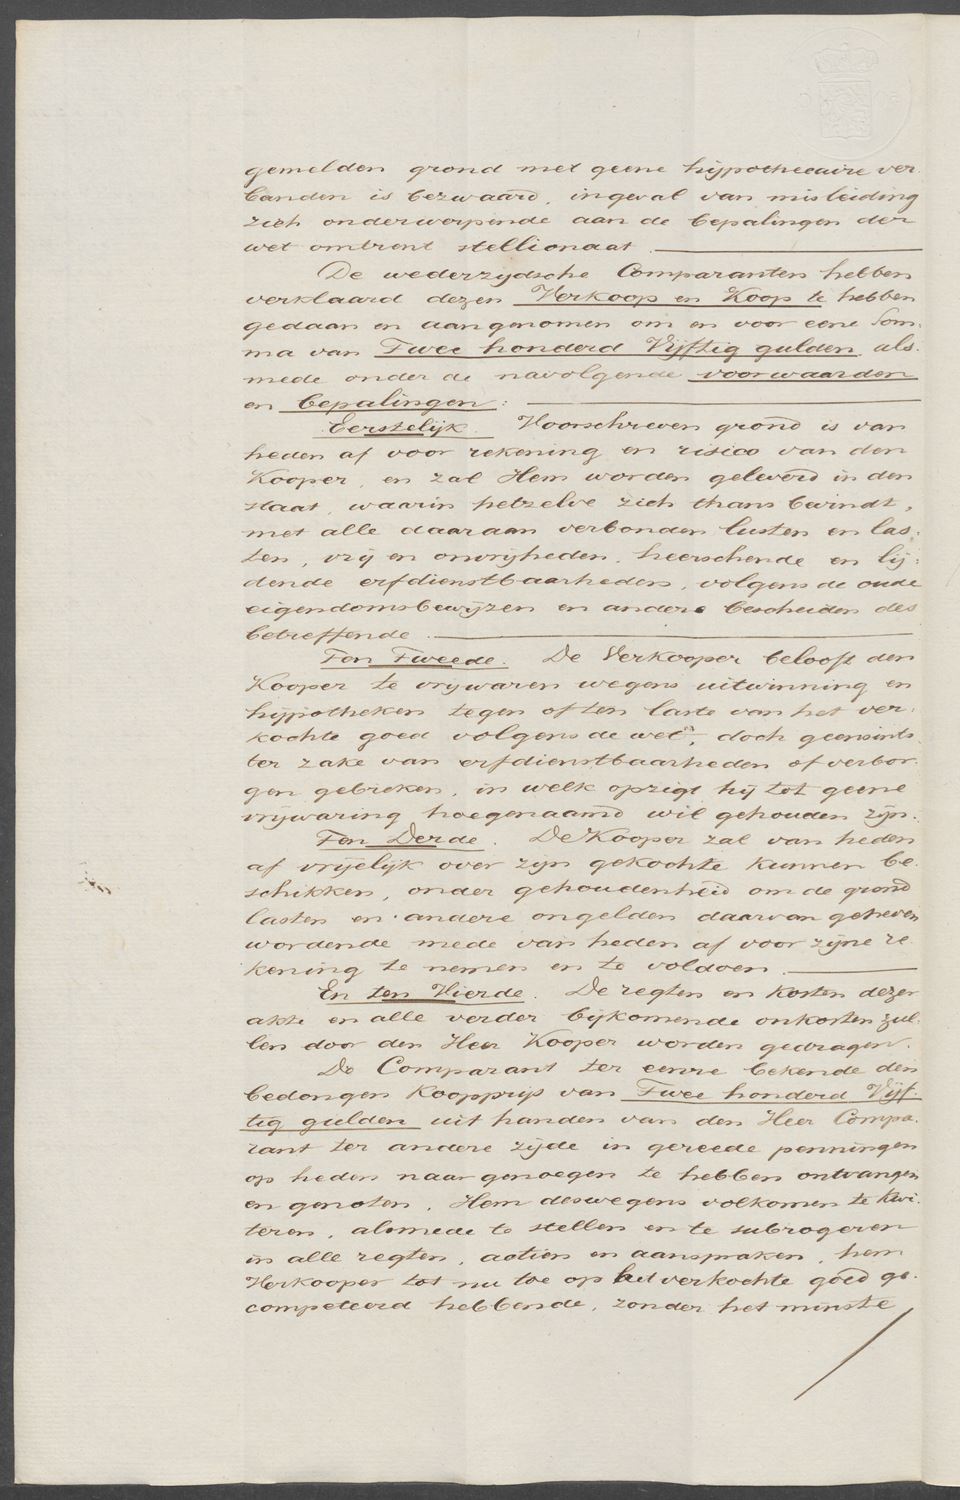 gemelden grond met geene hypothecaire ver
banden is bezwaard, ingeval van misleiding
zich onderwerpende aan de bepalingen der
wet omtrent stellionaat.
De wederzydsche Comparanten hebben
verklaard dezen Verkoop en Koop te hebben
gedaan en aangenomen om en voor eene Som-
ma van Twee honderd Vijftig gulden, als-
mede onder de navolgende voorwaarden
en bepalingen:
Eerstelijk. Voorschreven grond is van
heden af voor rekening en risico van den
Kooper, en zal Hem worden geleverd in den
staat, waarin hetzelve zich thans bevindt,
met alle daaraan verbonden lusten en las-
ten, vrij en onvrijheden, heerschende en lij-
dende erfdienstbaarheden, volgens de oude
eigendomsbewijzen en andere bescheiden des
betreffende.
Ten Tweede. De Verkooper belooft den
Kooper te vrijwaren wegens uitwinning en
hijpotheken tegen of ten laste van het ver-
kochte goed volgens de wet, doch geensints
ter zake van erfdienstbaarheden of verbor-
gen gebreken, in welk opzigt hij tot geene
vrijwaring hoegenaamd wil gehouden zijn.
Ten Derde. De Kooper zal van heden
af vrijelijk over zijn gekochte kunnen be-
schikken, onder gehoudenheid om de grond
lasten en andere ongelden daarvan geheven
wordende mede van heden af voor zijne re-
kening te nemen en te voldoen.
En ten Vierde. De regten en kosten dezer
akte en alle verder bijkomende onkosten zul-
len door den Heer Kooper worden gedragen.
De Comparant ter eenre bekende den
bedongen Koopprijs van Twee honderd Vijf-
tig gulden uit handen van den Heer Compa-
rant ter andere zijde in gereede penningen
op heden naar genoegen te hebben ontvangen
en genoten, Hem deswegens volkomen te kwi-
teren, alsmede te stellen en te subrogeren
in alle regten, actien en aanspraken, hem
Verkooper tot nu toe op het verkochte goed ge-
competeerd hebbende, zonder het minste